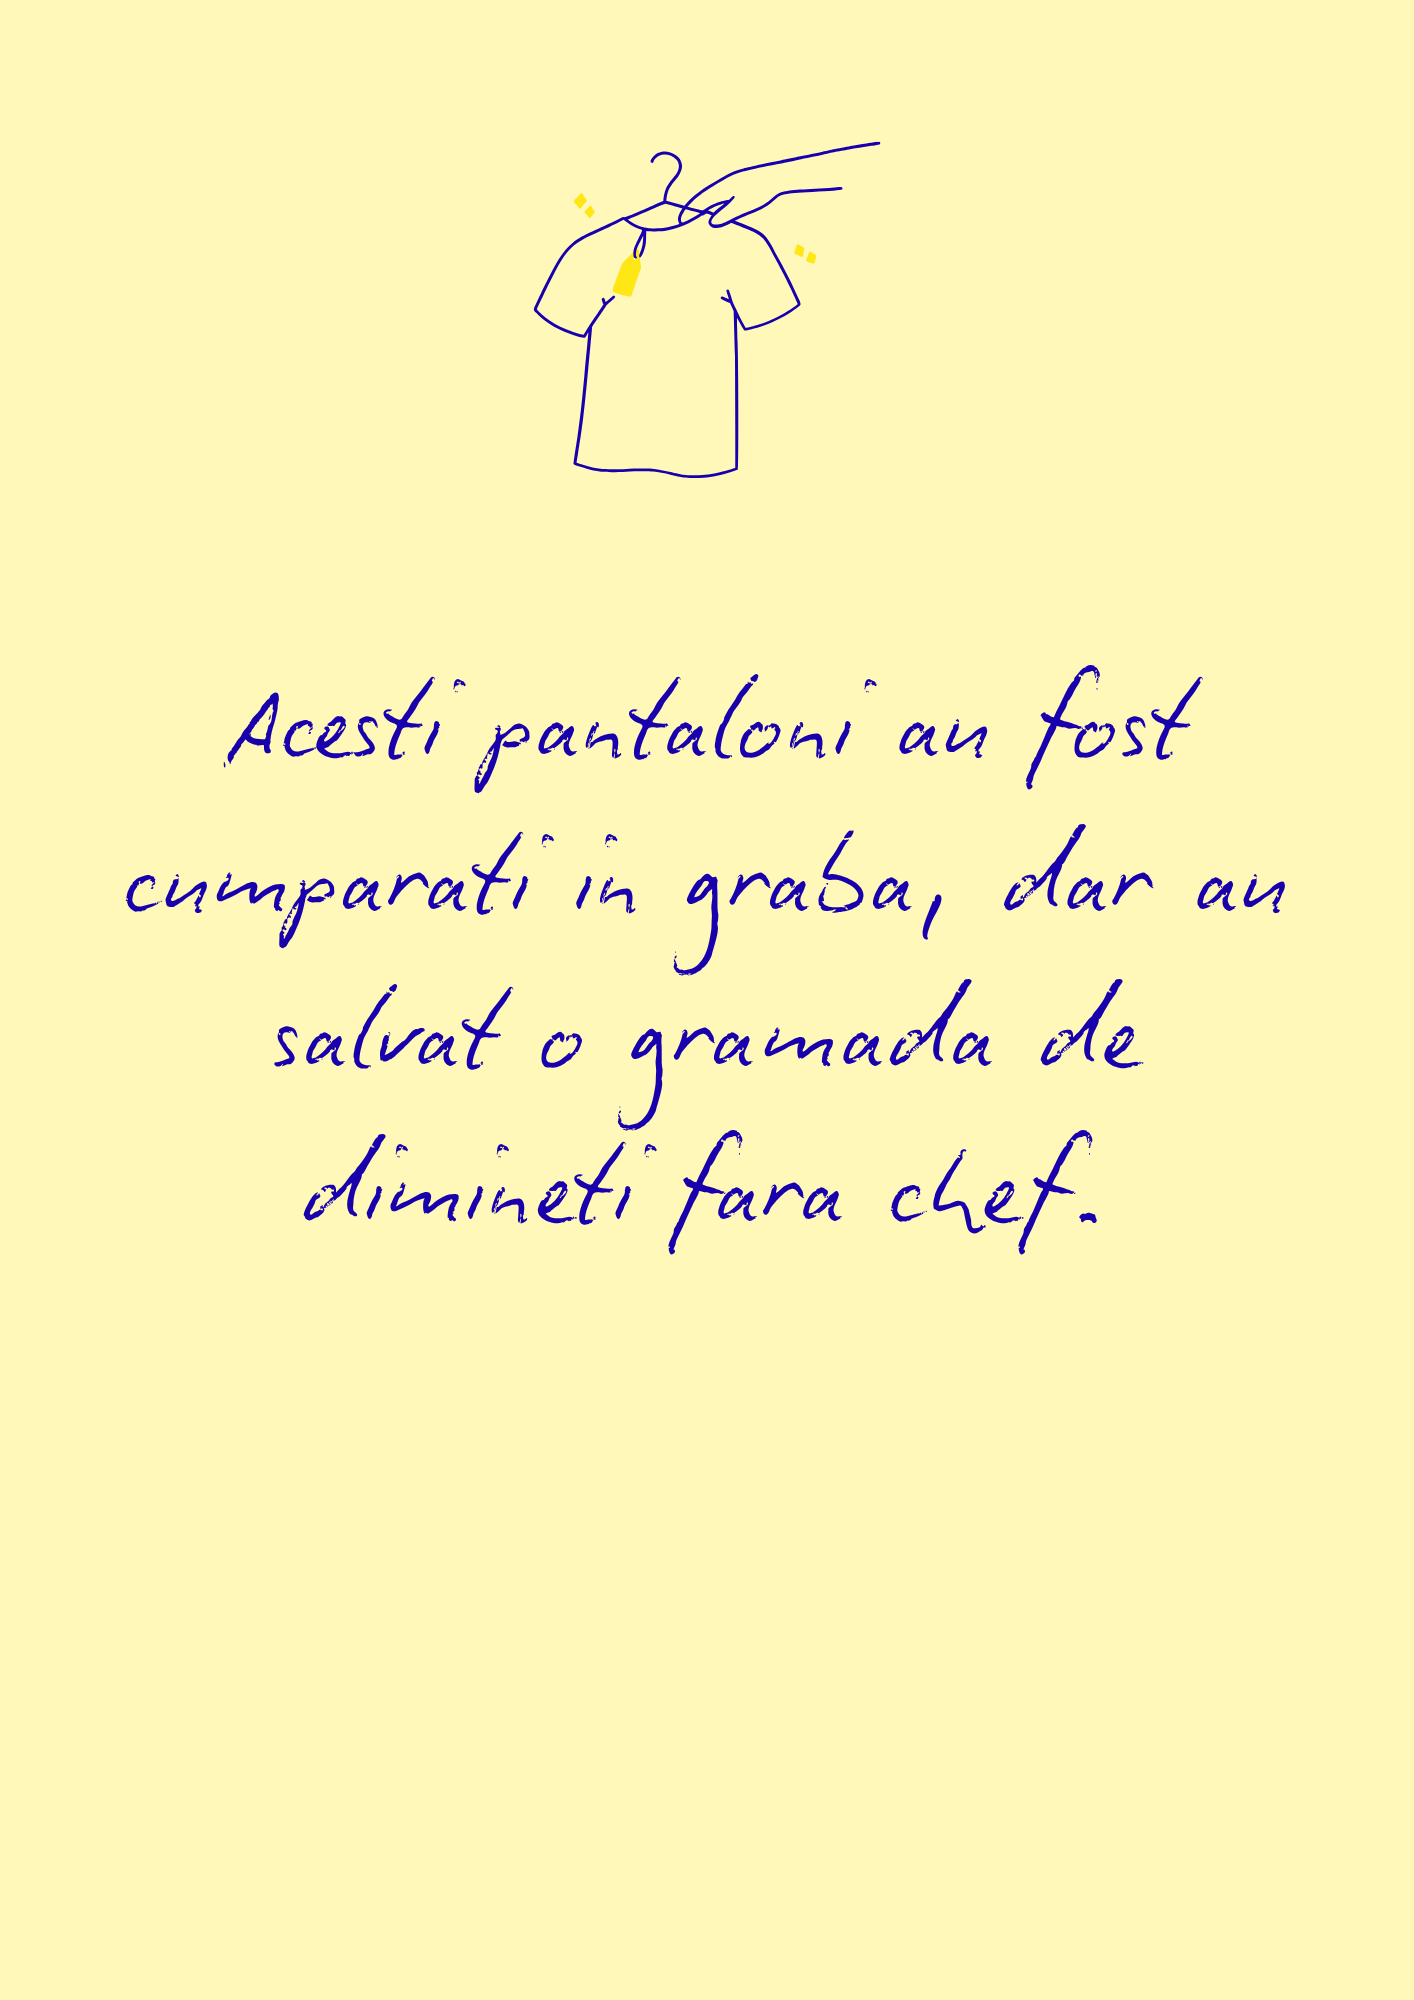 Acesti pantaloni au fost
cumparati in graba, dar au
salvat o gramada de
dimineti fara chef.